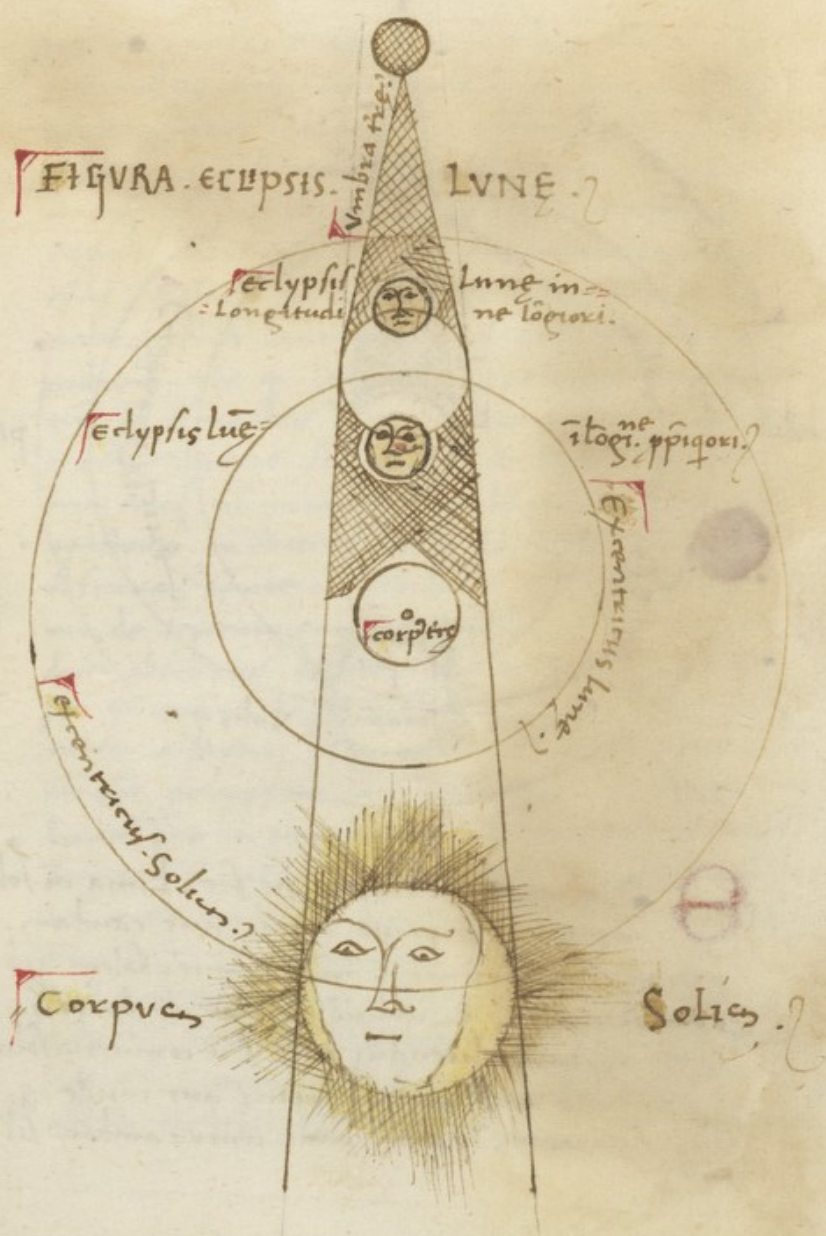 FIGVRA. ECLIPSIS. LVNĘ.
Vmbra tr̄ę.
Eclypsis Lunę in=
=Longitudi ne lōgiori.
Eclypsis luē= ī lōgi.ne pp̄iqori.
Excentricus lune.
corp9 trę
excentricus. Solis.
Corpvs Solis.